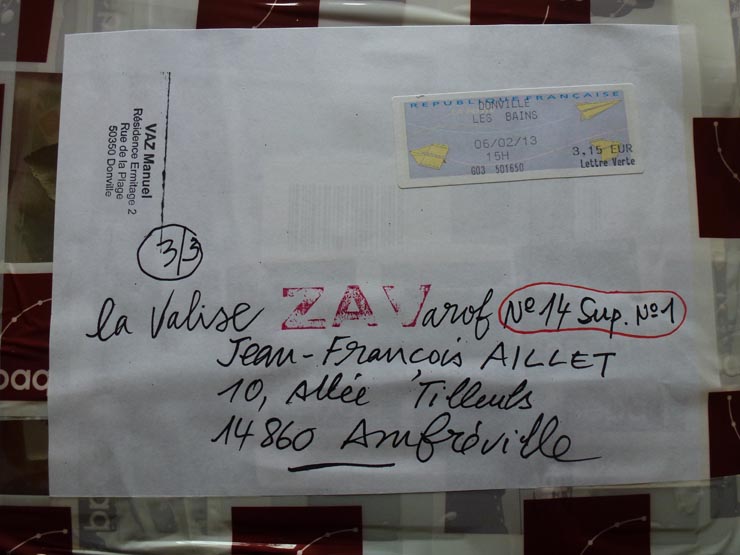 VAZ Manuel
Résidence Ermitage 2
Rue de la Plage
50350 Donville
REPUBLIQUE FRANÇAISE
DONVILLE
LES BAINS
06/02/13
15H
3,15 EUR
Lettre Verte
G03 501650
3/3
la Valise ZAVarof Nº14 Sup. Nº1
Jean-François AILLET
10, Allée Tilleuls
14860 Amfréville